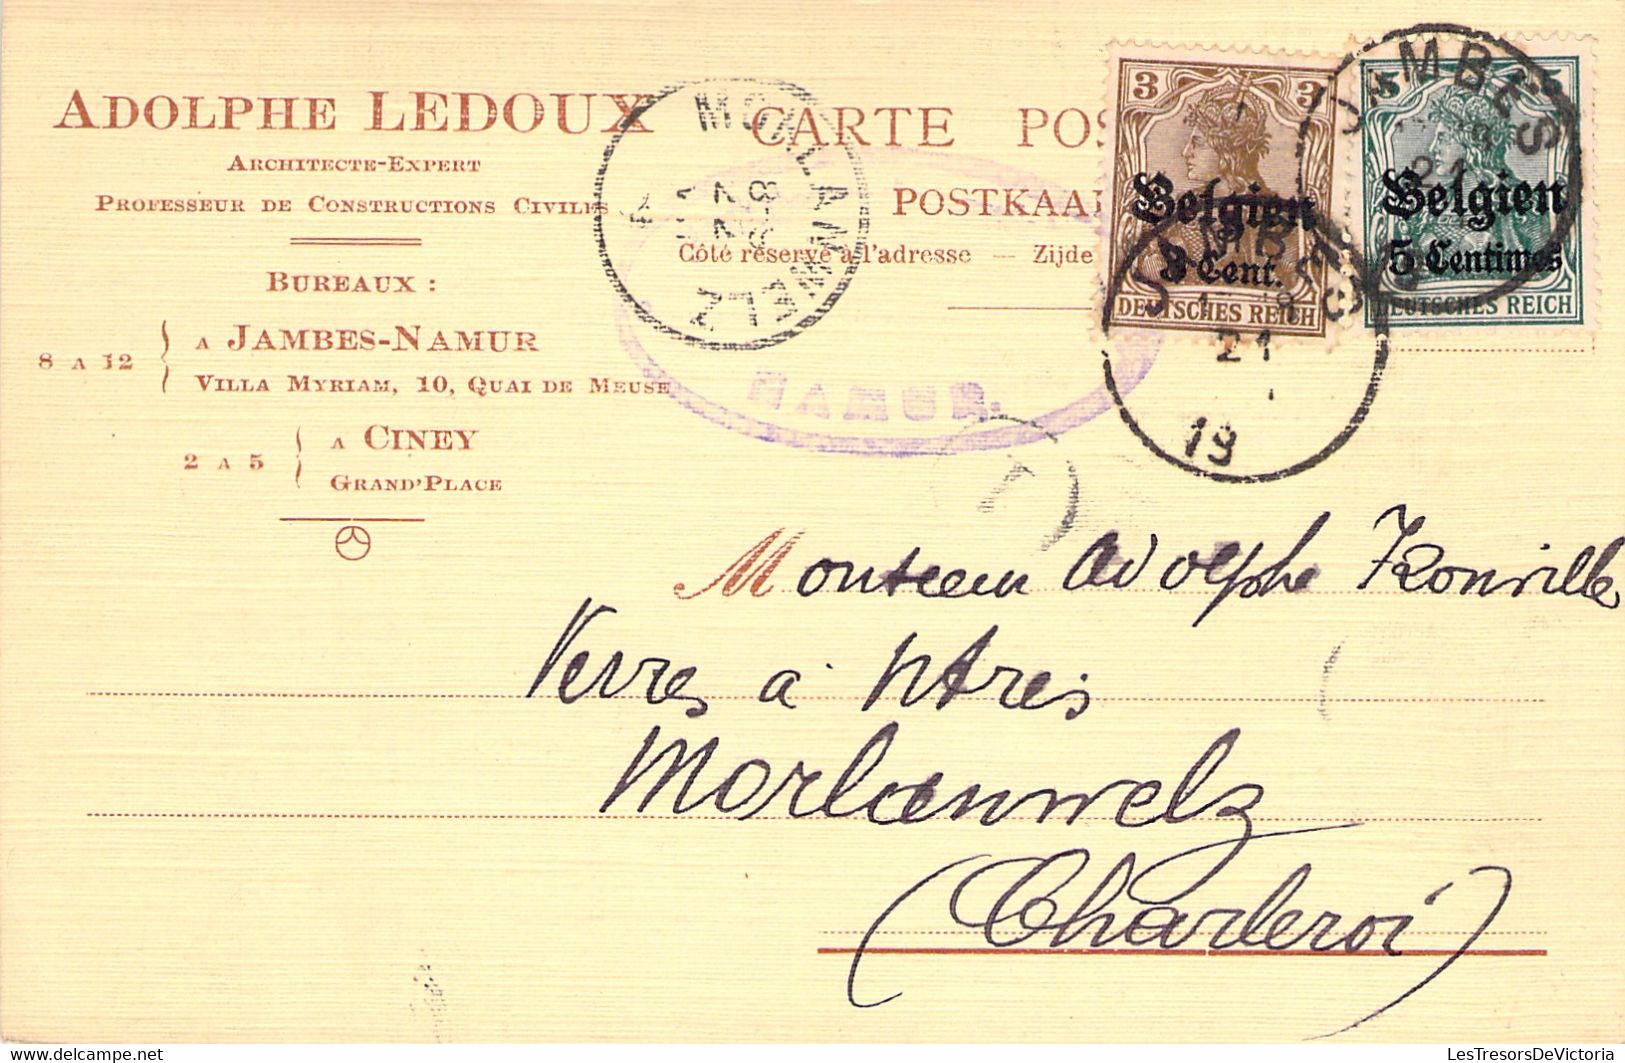 ADOLPHE LEDOUX
ARCHITECTE-EXPERT
PROFESSEUR DE CONSTRUCTIONS CIVILES
BUREAUX :
8 A 12
A JAMBES-NAMUR
VILLA MYRIAM, 10, QUAI DE MEUSE
2 A 5
A CINEY
GRAND'PLACE
CARTE POS
POSTKAA
Côté réservé à l'adresse — Zijde
MORLANWELZ
NAMUR.
3 3
Belgien
3 Cent.
DEUTSCHES REICH
5
Belgien
5 Centimes
DEUTSCHES REICH
JAMBES
21
JAMBES
21
19
Monsieur Adolphe
Verres à vitres
Morlanwelz
(Charleroi)
Delcampe.net
LesTresorsDeVictoria